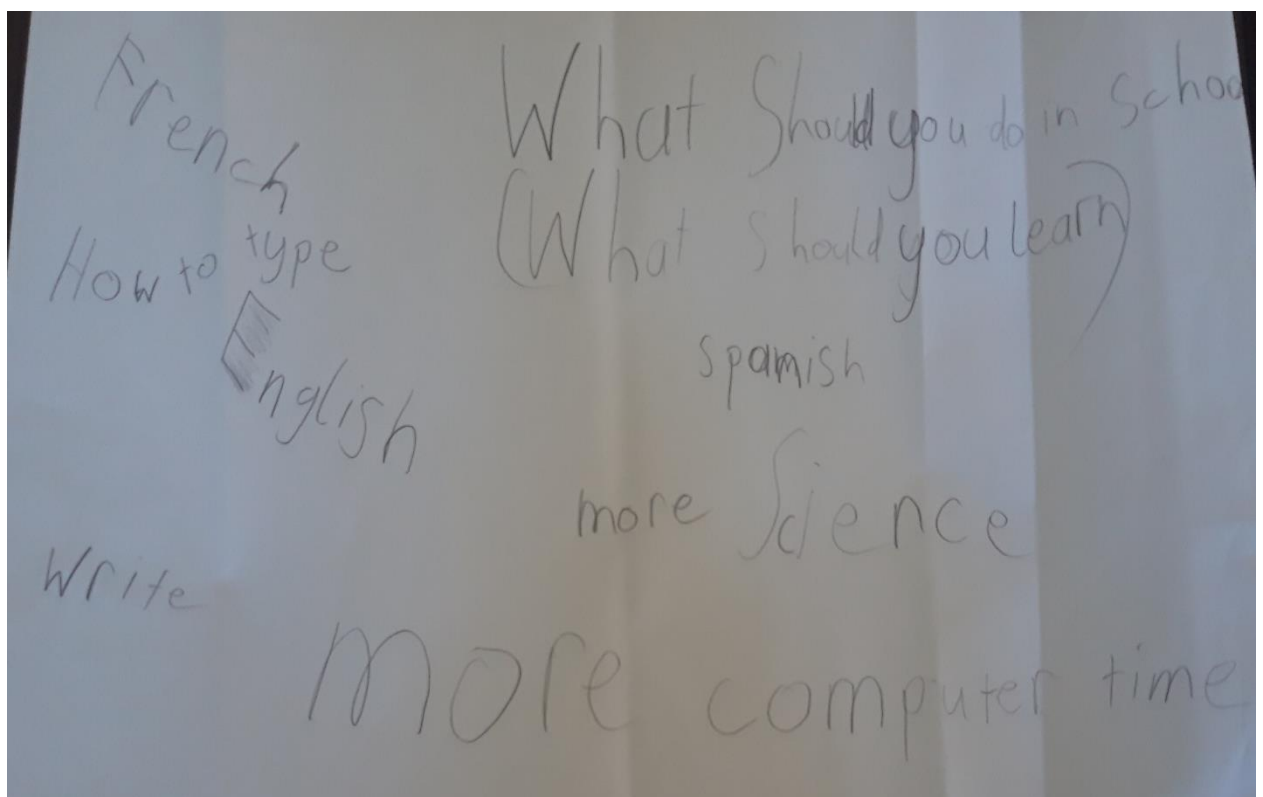 What Should you do in Schoo
(What Should you learn)
French
How to type
English
spanish
more Science
Write
more computer time